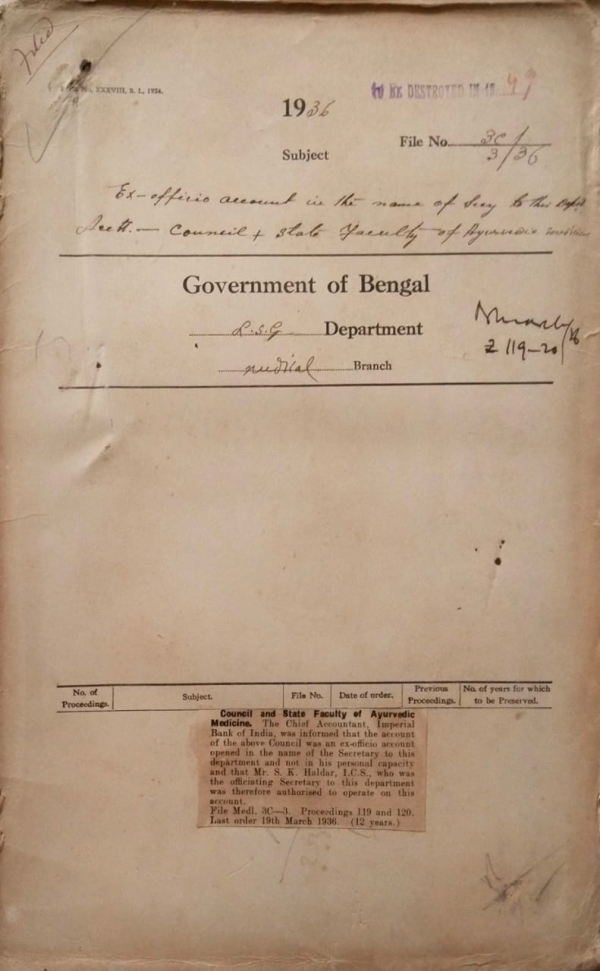 XXXVIII, S. I., 1934.
TO BE DESTROYED IN 19 49
1936
Subject
File No. 3C/
3/36
Ex-officio account in the name of Secy to this Dept
Council & State Faculty of Ayurvedic medicine
Government of Bengal
L.S.G Department
Medical Branch
Z 119-20
No. of Proceedings. Subject. File No. Date of order. Previous Proceedings. No. of years for which to be Preserved.
Council and State Faculty of Ayurvedic
Medicine. The Chief Accountant, Imperial
Bank of India, was informed that the account
of the above Council was an ex-officio account
opened in the name of the Secretary to this
department and not in his personal capacity
and that Mr. S. K. Haldar, I.C.S., who was
the officiating Secretary to this department
was therefore authorised to operate on this
account.
File Medl. 3C—3. Proceedings 119 and 120.
Last order 19th March 1936. (12 years.)